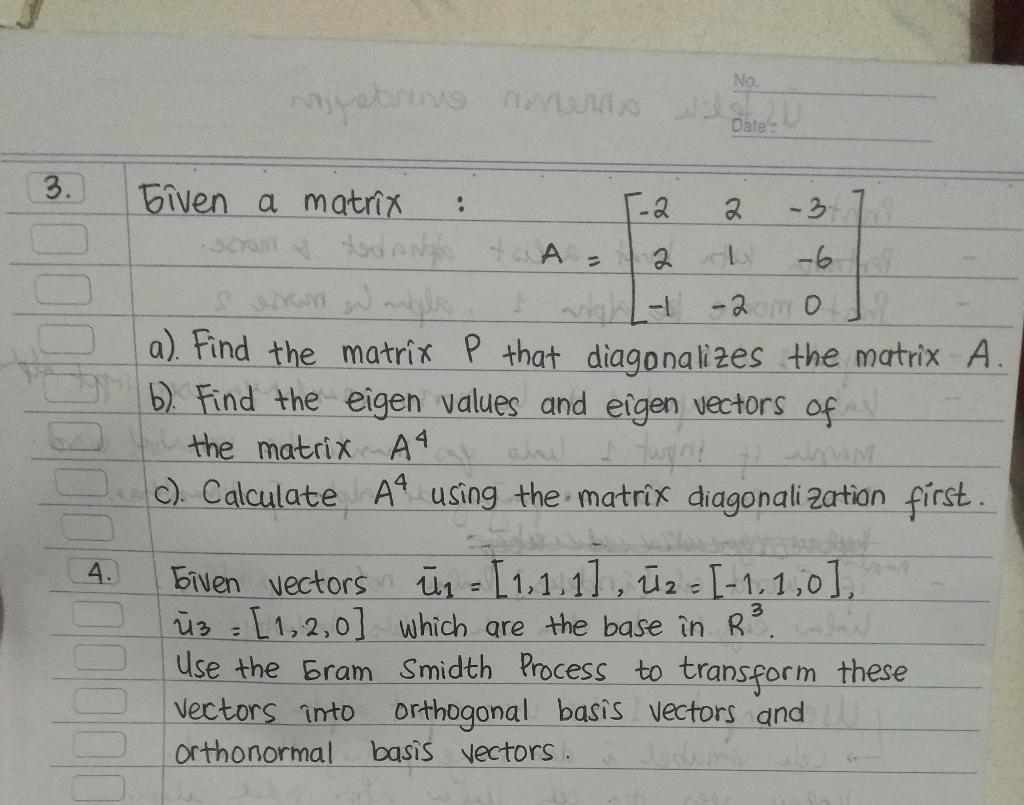 No.
Date:
3. Given a matrix :
A = [-2 2 -3
2 1 -6
-1 -2 0]
a). Find the matrix P that diagonalizes the matrix A.
b). Find the eigen values and eigen vectors of
the matrix A⁴
c). Calculate A⁴ using the matrix diagonalization first.
4. Given vectors ū₁ = [1,1,1], ū₂ = [-1,1,0],
ū₃ = [1,2,0] which are the base in R³.
Use the Gram Smidth Process to transform these
vectors into orthogonal basis vectors and
orthonormal basis vectors.